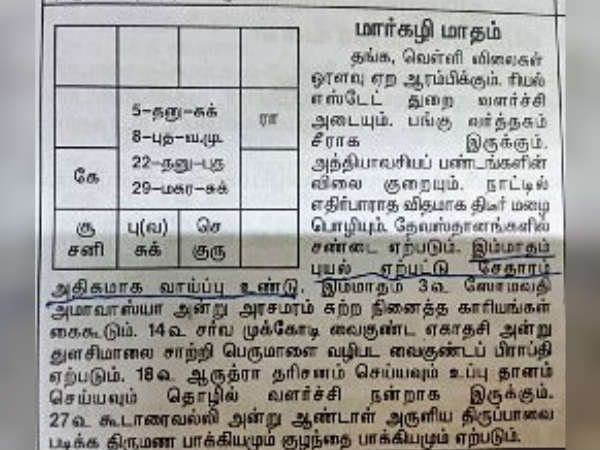 மார்கழி மாதம்
தங்க, வெள்ளி விலைகள்
ஓரளவு ஏற ஆரம்பிக்கும். ரியல்
எஸ்டேட் துறை வளர்ச்சி
அடையும். பங்கு வர்த்தகம்
சீராக இருக்கும்.
அத்தியாவசியப் பண்டங்களின்
விலை குறையும். நாட்டில்
எதிர்பாராத விதமாக திடீர் மழை
பொழியும். தேவஸ்தானங்களில்
சண்டை ஏற்படும். இம்மாதம்
புயல் ஏற்பட்டு சேதாரம்
அதிகமாக வாய்ப்பு உண்டு. இம்மாதம் 3உ ஸோமவதி
அமாவாஸ்யா அன்று அரசமரம் சுற்ற நினைத்த காரியங்கள்
கைகூடும். 14உ சர்வ முக்கோடி வைகுண்ட ஏகாதசி அன்று
துளசிமாலை சாற்றி பெருமாளை வழிபட வைகுண்டப் பிராப்தி
ஏற்படும். 18உ ஆருத்ரா தரிசனம் செய்யவும் உப்பு தானம்
செய்யவும் தொழில் வளர்ச்சி நன்றாக இருக்கும்.
27உ கூடாரைவல்லி அன்று ஆண்டாள் அருளிய திருப்பாவை
படிக்க திருமண பாக்கியமும் குழந்தை பாக்கியமும் ஏற்படும்.
5-தனு-சுக்
8-புத-வ.மு
22-தனு-புத
29-மகர-சுக்
ரா
கே
சூ
சனி
பு(வ)
சுக்
செ
குரு